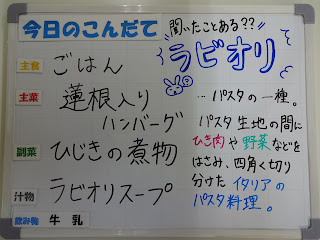 今日のこんだて
主食 ごはん
主菜 蓮根入り
ハンバーグ
副菜 ひじきの煮物
汁物 ラビオリスープ
飲み物 牛乳
聞いたことある??
ラビオリ
…パスタの一種。
パスタ生地の間に
ひき肉や野菜などを
はさみ、四角く切り
分けたイタリアの
パスタ料理。